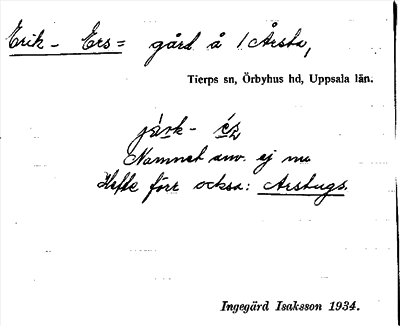 Erik- Ers= gård å / Årsta,
Tierps sn, Örbyhus hd, Uppsala län.
Namnet anv. ej nu
Hette förr också: Arstugs.
Ingegärd Isaksson 1934.